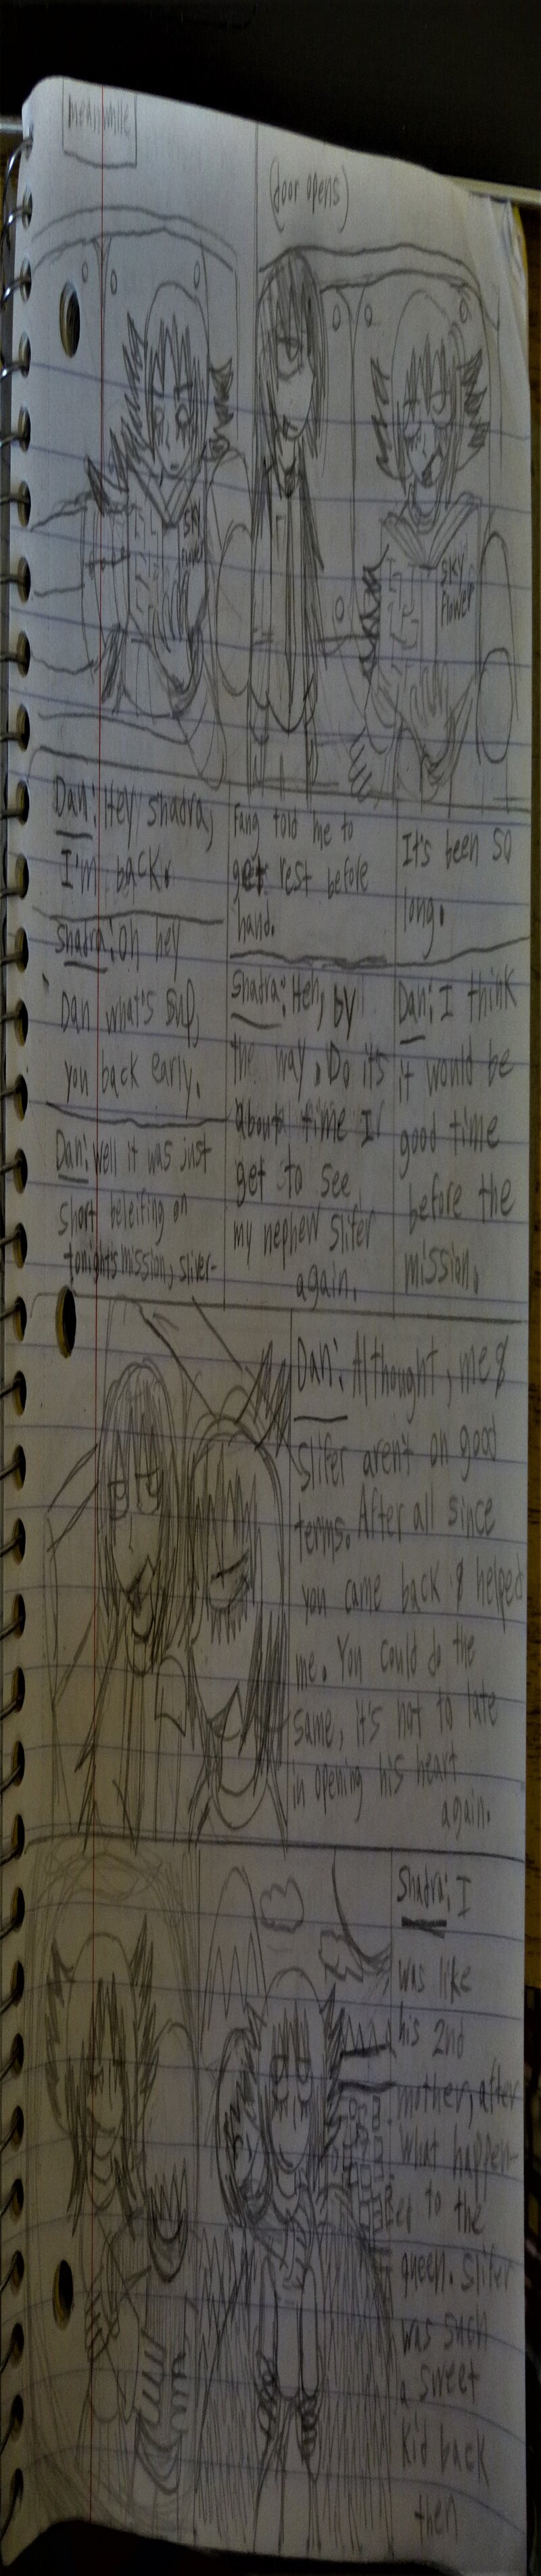 meanwhile
(door opens)
SKY
flower
SKY
flower
Dan: Hey shadra,
I'm back.
Shadra: oh hey
Dan what's sup,
you back early.
Dan: well it was just
short beleifing on
tonights mission, sliver-
Fang told me to
get rest before
hand.
Shadra: Heh, by
the way. Do it's
about time I
get to see
my nephew Slifer
again.
It's been so
long.
Dan: I think
it would be
good time
before the
mission.
Dan: Althought, me &
Slifer aren't on good
terms. After all since
you came back & helped
me. You could do the
same, it's not to late
in opening his heart
again.
Shadra: I
was like
his 2nd
mother, after
what happen-
ed to the
queen. Slifer
was such
a sweet
kid back
then